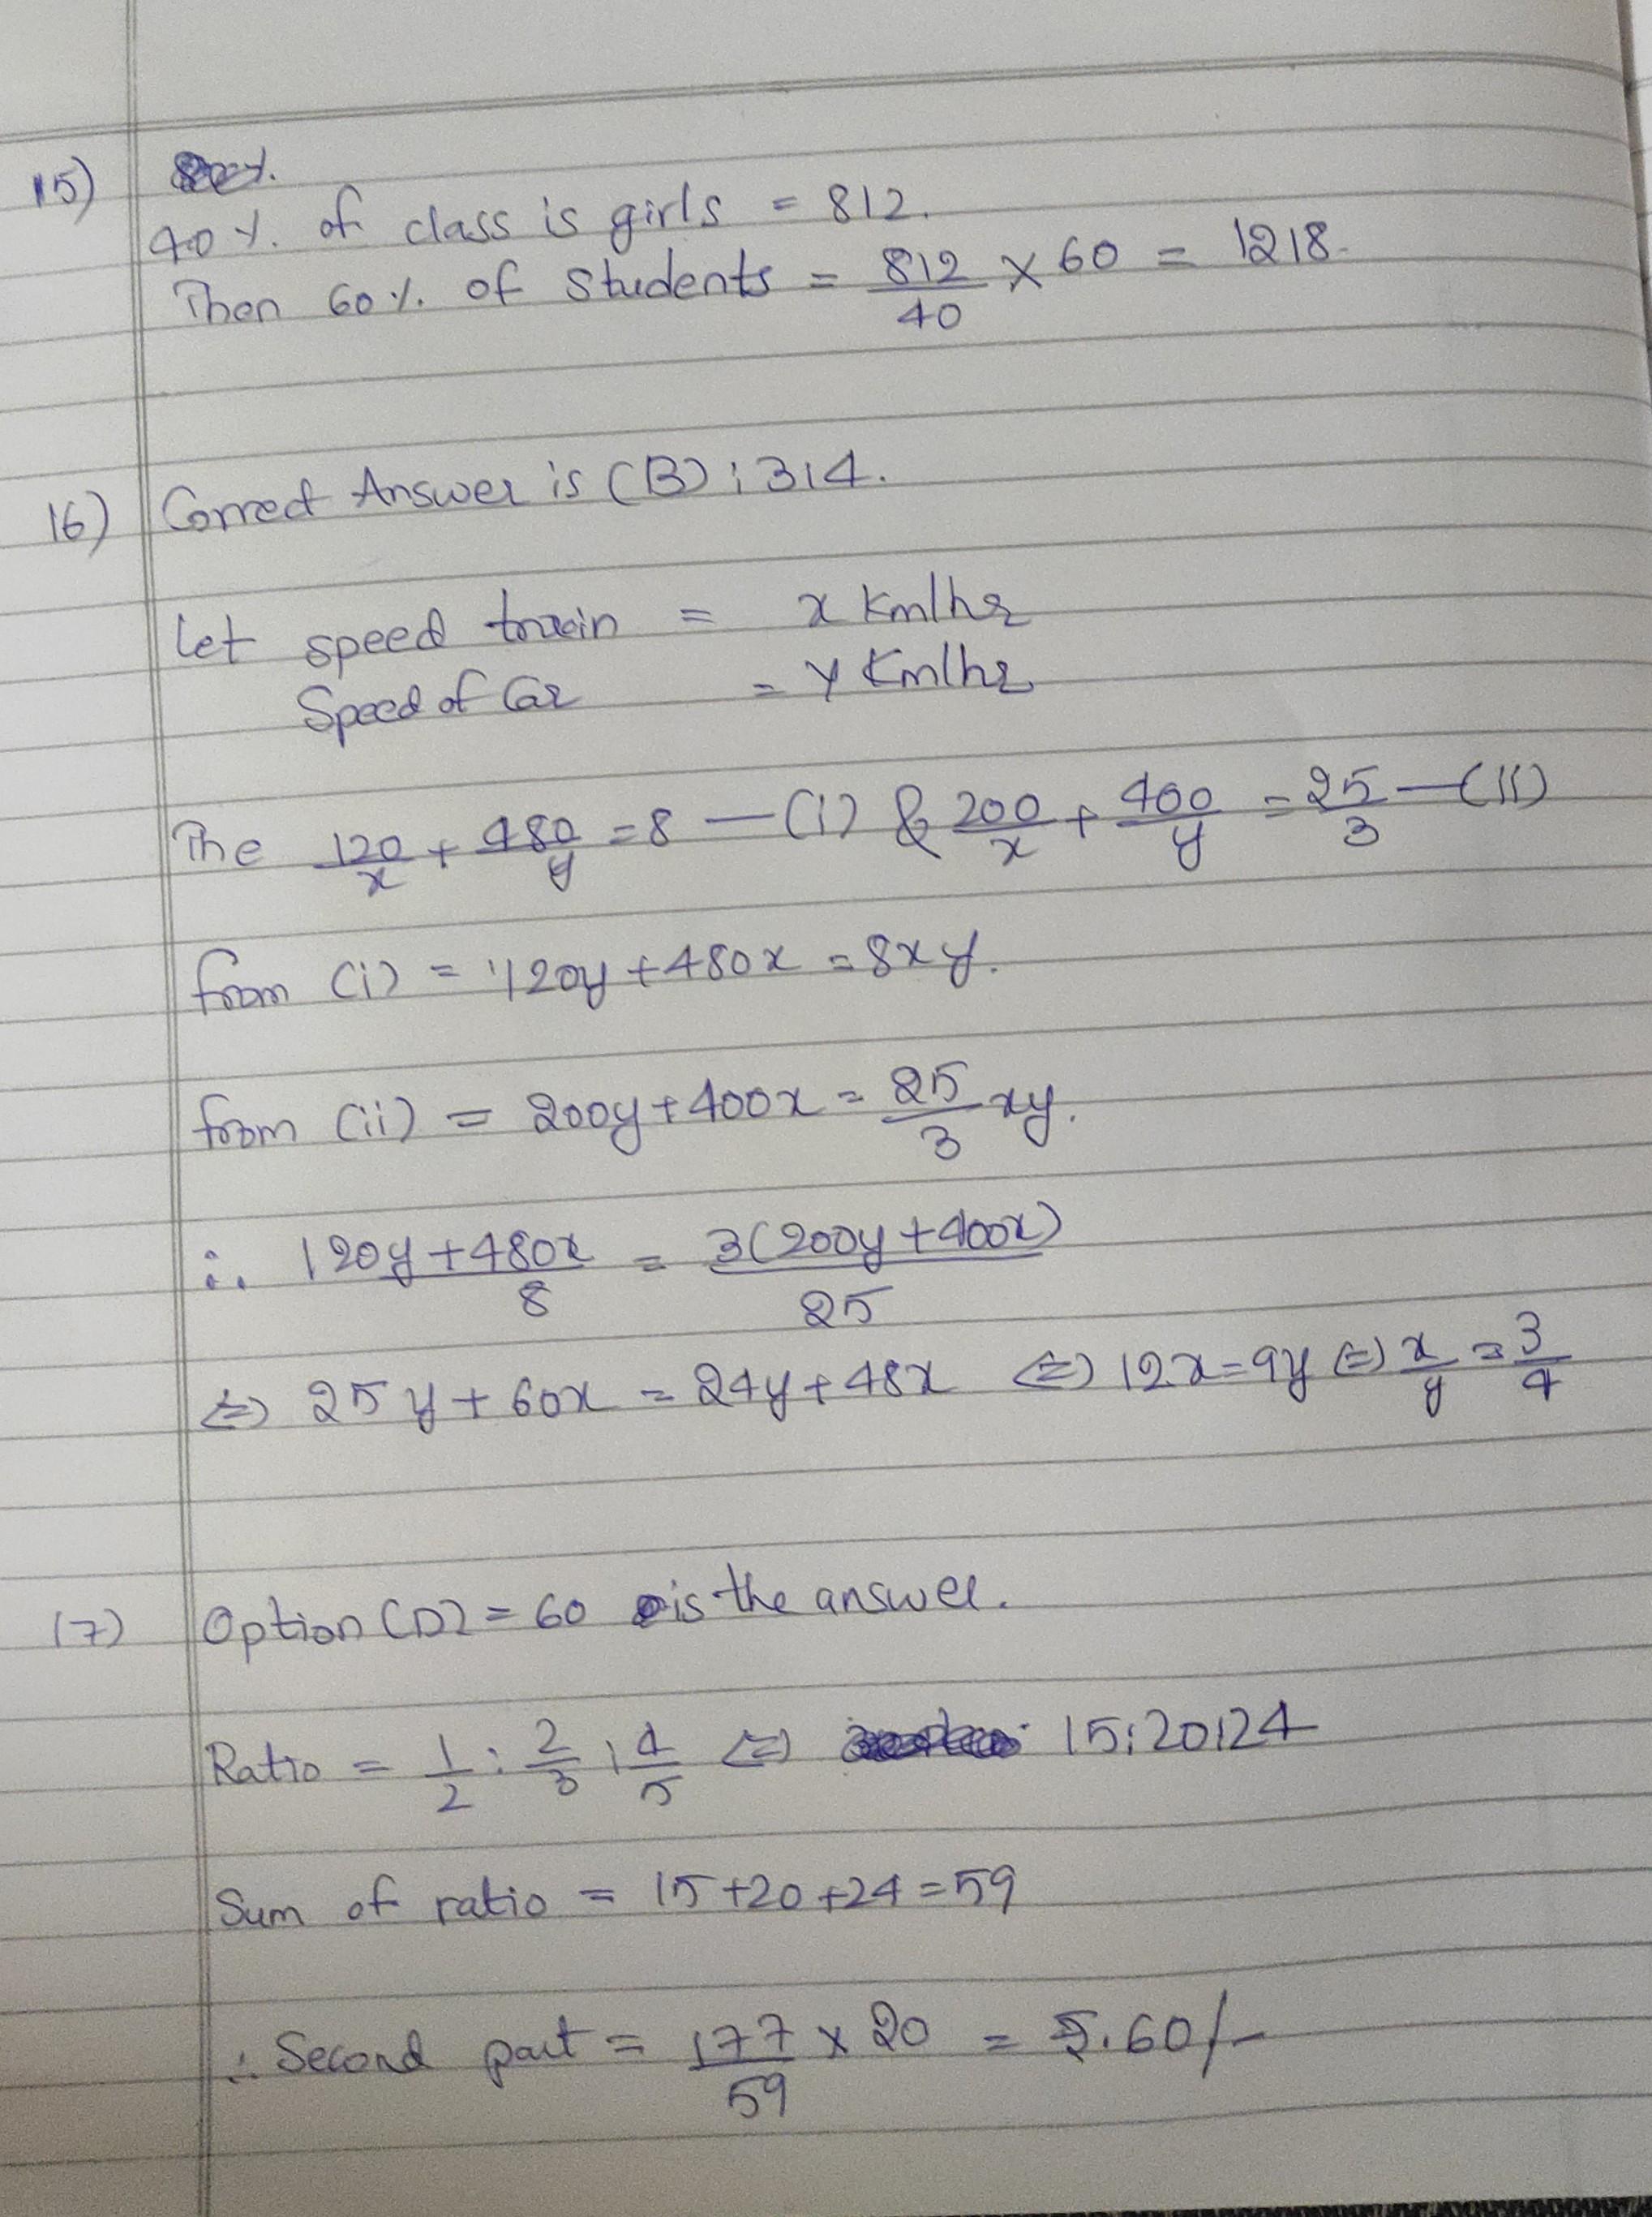 15)
40%. of class is girls = 812.
Then 60%. of Students = 812/40 × 60 = 1218.
16) Correct Answer is (B) : 3:4.
Let speed train = x Km/hr
Speed of Car = y Km/hr
The 120/x + 480/y = 8 — (i) & 200/x + 400/y = 25/3 — (ii)
from (i) = 120y + 480x = 8xy.
from (ii) = 200y + 400x = 25/3 xy.
∴ 120y + 480x / 8 = 3(200y + 400x) / 25
⇔ 25y + 60x = 24y + 48x ⇔ 12x = 9y ⇔ x/y = 3/4
17) Option (D) = 60 is the answer.
Ratio = 1/2 : 2/3 : 4/5 ⇔ 15:20:24
Sum of ratio = 15+20+24=59
∴ Second part = 177/59 × 20 = .60/-